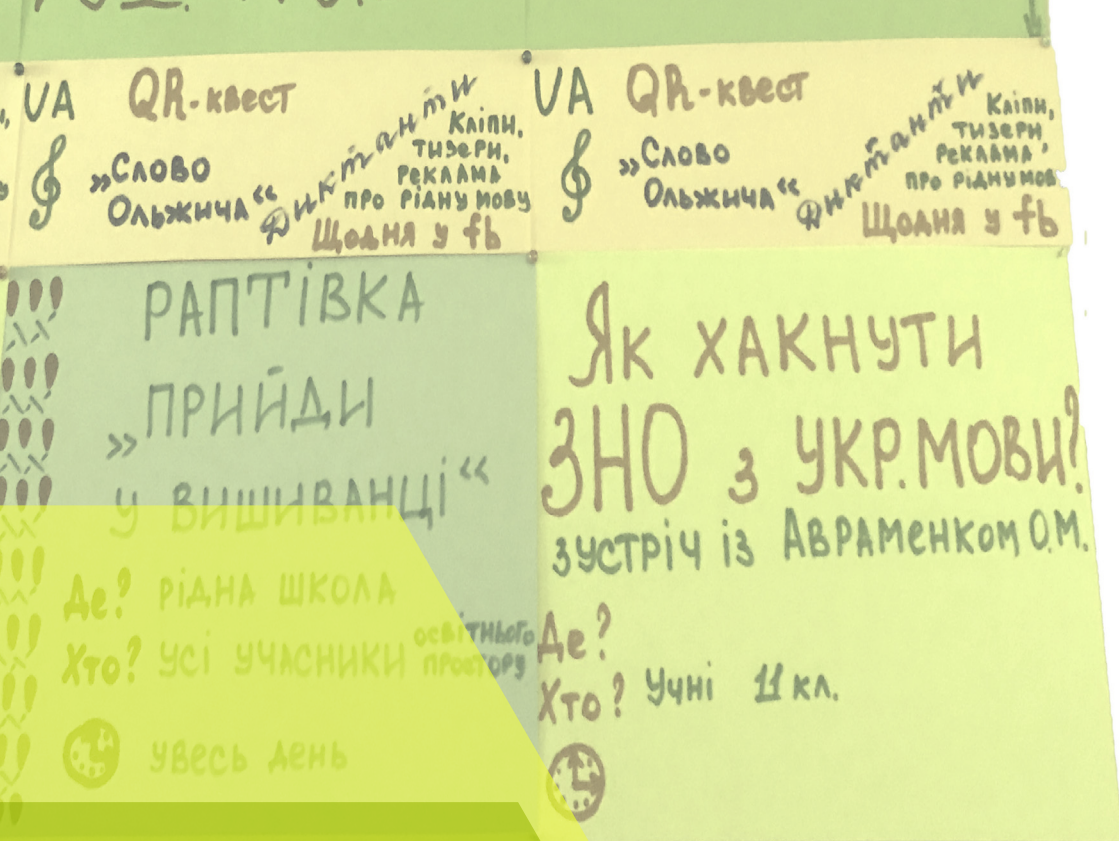 UA QR-квест
„Слово
Ольжича“
Диктанти
Кліпи,
тизери,
реклама
про рідну мову
Щодня у fb
UA QR-квест
„Слово
Ольжича“
Диктанти
Кліпи,
тизери,
реклама
про рідну мов
Щодня у fb
РАПТІВКА
„ПРИЙДИ
У ВИШИВАНЦІ“
Де? рідна школа
Хто? усі учасники освітнього
простору
увесь день
Як хакнути
ЗНО з укр. мови?
зустріч із Авраменком О.М.
Де?
Хто? Учні 11 кл.